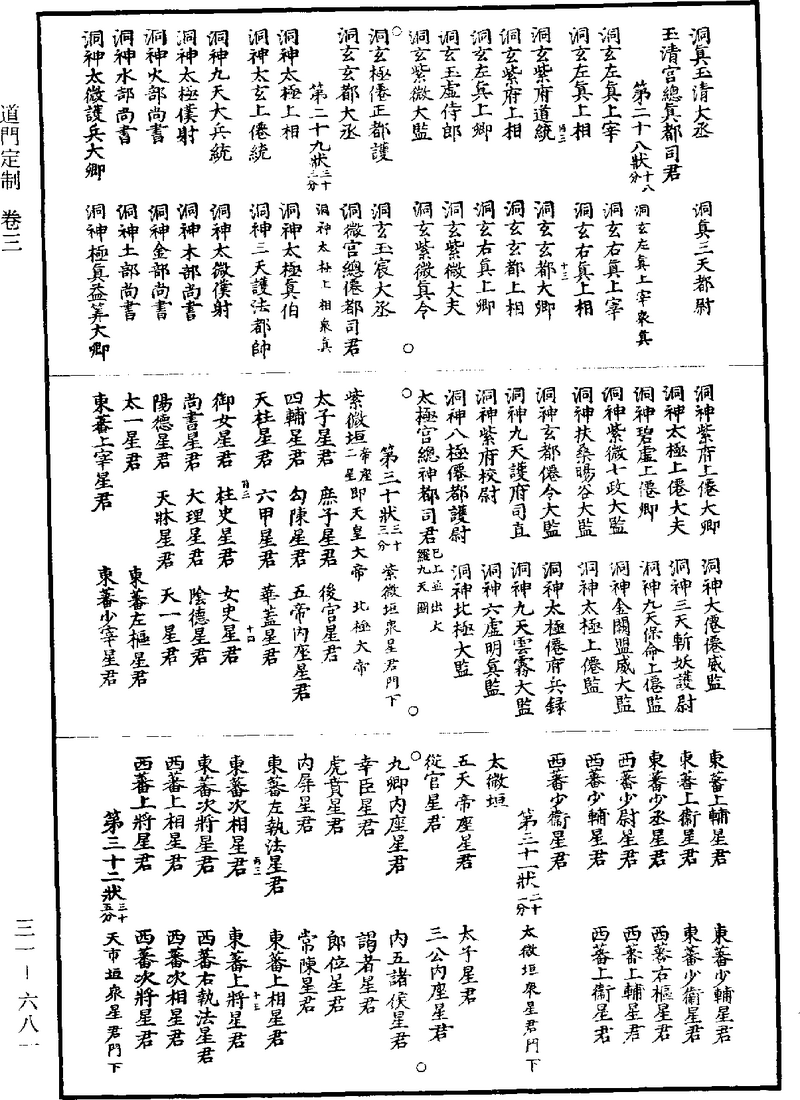 洞真玉清大丞　洞真三天都尉
玉清宮總真都司君
第二十八狀十八分　洞玄左真上宰衆真
洞玄左真上宰　洞玄右真上宰
洞玄左真上相　洞玄右真上相
洞玄紫府道統　洞玄玄都大卿
洞玄紫府上相　洞玄玄都上相
洞玄左真上卿　洞玄右真上卿
洞玄玉虛侍郎　洞玄紫微大夫
洞玄紫微大監　洞玄紫微真令
洞玄極僊正都護　洞玄玉宸大丞
洞玄玄都大丞　洞微宮總僊都司君
第二十九狀三十二分　洞神太極上相衆真
洞神太極上相　洞神太極真伯
洞神太玄上僊統　洞神三天護法都帥
洞神九天大兵統　洞神太微僕射
洞神太極僕射　洞神木部尚書
洞神火部尚書　洞神金部尚書
洞神水部尚書　洞神土部尚書
洞神太微護兵大卿　洞神極真益筭大卿
洞神紫府上僊大卿　洞神大僊僊威監
洞神太極上僊大夫　洞神三天斬妖護尉
洞神碧虛上僊卿　洞神九天保命上僊監
洞神紫微七政大監　洞神金闕盟威大監
洞神扶桑暘谷大監　洞神太極上僊監
洞神玄都僊令大監　洞神太極僊府兵錄
洞神九天護府司直　洞神九天雲霧大監
洞神紫府校尉　洞神六虛明真監
洞神八極僊都護尉　洞神北極大監
太極宮總神都司君已上並出大羅九天圖
第三十狀三十三分　紫微垣衆星君門下
紫微垣帝座二星即天皇大帝　北極大帝
太子星君　庶子星君　後宮星君
四輔星君　勾陳星君　五帝內座星君
天柱星君　六甲星君　華蓋星君
御女星君　柱史星君　女史星君
尚書星君　大理星君　陰德星君
陽德星君　天牀星君　天一星君
太一星君　東蕃左樞星君
東蕃上宰星君　東蕃少宰星君
東蕃上輔星君　東蕃少輔星君
東蕃上衞星君　東蕃少衞星君
東蕃少丞星君　西蕃右樞星君
西蕃少尉星君　西蕃上輔星君
西蕃少輔星君　西蕃上衞星君
西蕃少衞星君
第三十一狀二十一分　太微垣衆星君門下
太微垣
五天帝座星君　太子星君
從官星君　三公內座星君
九卿內座星君　內五諸侯星君
幸臣星君　謁者星君
虎賁星君　郎位星君
內屏星君　常陳星君
東蕃左執法星君　東蕃上相星君
東蕃次相星君　東蕃上將星君
東蕃次將星君　西蕃右執法星君
西蕃上相星君　西蕃次相星君
西蕃上將星君　西蕃次將星君
第三十二狀三十五分　天市垣衆星君門下
道門定制　卷三
三一—六八一